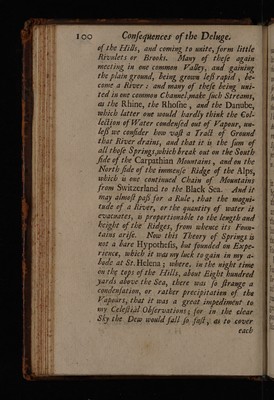 100 Consequences of the Deluge.
of the Hills, and coming to unite, form little
Rivulets or Brooks. Many of these again
meeting in one common Valley, and gaining
the plain ground, being grown less rapid, be-
come a River: and many of these being uni-
ted in one common Channel, make such Streams,
as the Rhine, the Rhosne, and the Danube,
which latter one would hardly think the Col-
lection of Water condensed out of Vapour, un-
less we consider how vast a Tract of Ground
that River drains, and that it is the sum of
all those Springs, which break out on the South
side of the Carpathian Mountains, and on the
North side of the immense Ridge of the Alps,
which is one continued Chain of Mountains
from Switzerland to the Black Sea. And it
may almost pass for a Rule, that the magni-
tude of a River, or the quantity of water it
evacuates, is proportionable to the length and
height of the Ridges, from whence its Foun-
tains arise. Now this Theory of Springs is
not a bare Hypothesis, but founded on Expe-
rience, which it was my luck to gain in my a-
bode at St. Helena; where, in the night time
on the tops of the Hills, about Eight hundred
yards above the Sea, there was so strange a
condensation, or rather precipitation of the
Vapours, that it was a great impediment to
my Celestial Observations; for in the clear
Sky the Dew would fall so fast, as to cover
each